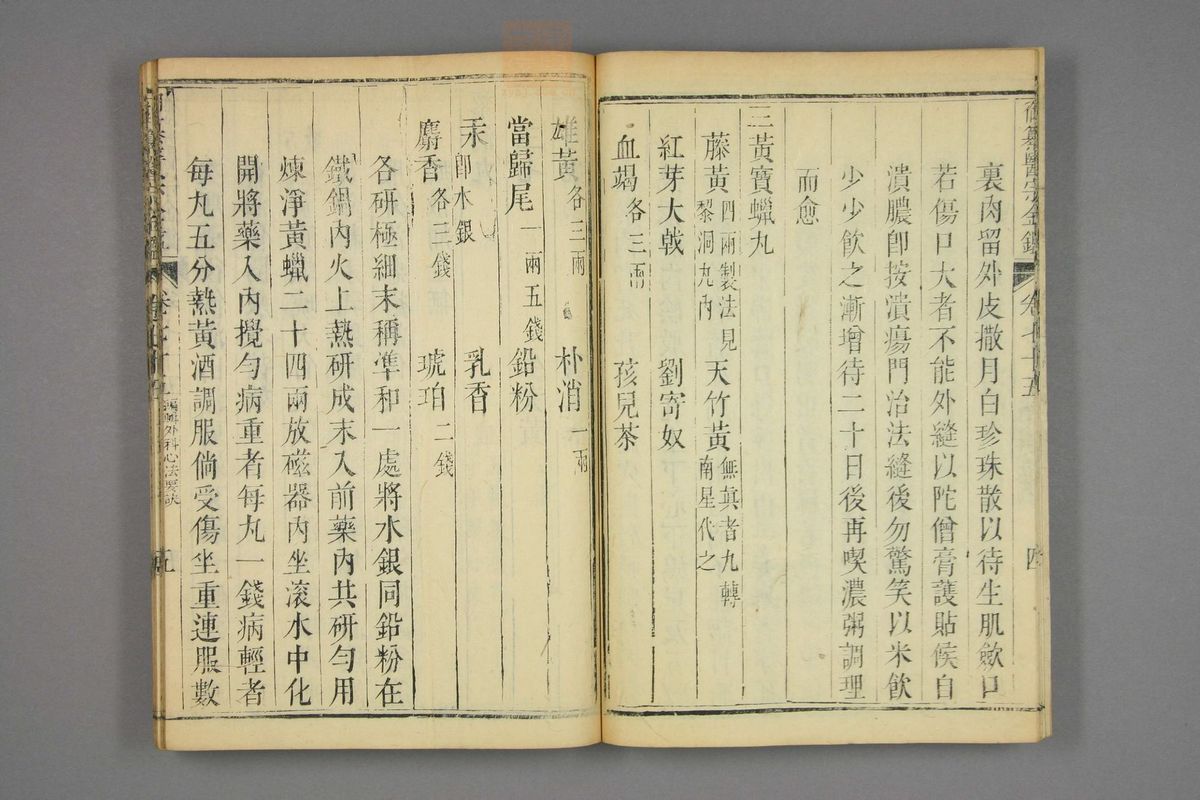 御纂醫宗金鑑 卷七十五 四
裏肉留外皮撒月白珍珠散以待生肌斂口
若傷口大者不能外縫以陀僧膏護貼候自
潰膿卽按潰瘍門治法縫後勿驚笑以米飲
少少飲之漸增待二十日後再喫濃粥調理
而愈
三黃寶蠟丸
藤黃四兩製法見黎洞丸內 天竹黃無眞者九轉南星代之
紅芽大戟 劉寄奴
血竭各三兩 孩兒茶
雄黃各三兩 朴消一兩
當歸尾一兩五錢 鉛粉
汞卽水銀 乳香
麝香各三錢 琥珀二錢
各研極細末稱準和一處將水銀同鉛粉在
鐵鍋內火上熱研成末入前藥內共硏勻用
煉淨黃蠟二十四兩放磁器內坐滾水中化
開將藥入內攪勻病重者每丸一錢病輕者
每丸五分熱黃酒調服倘受傷至重連服數
卷七十五 編輯外科心法要訣 五